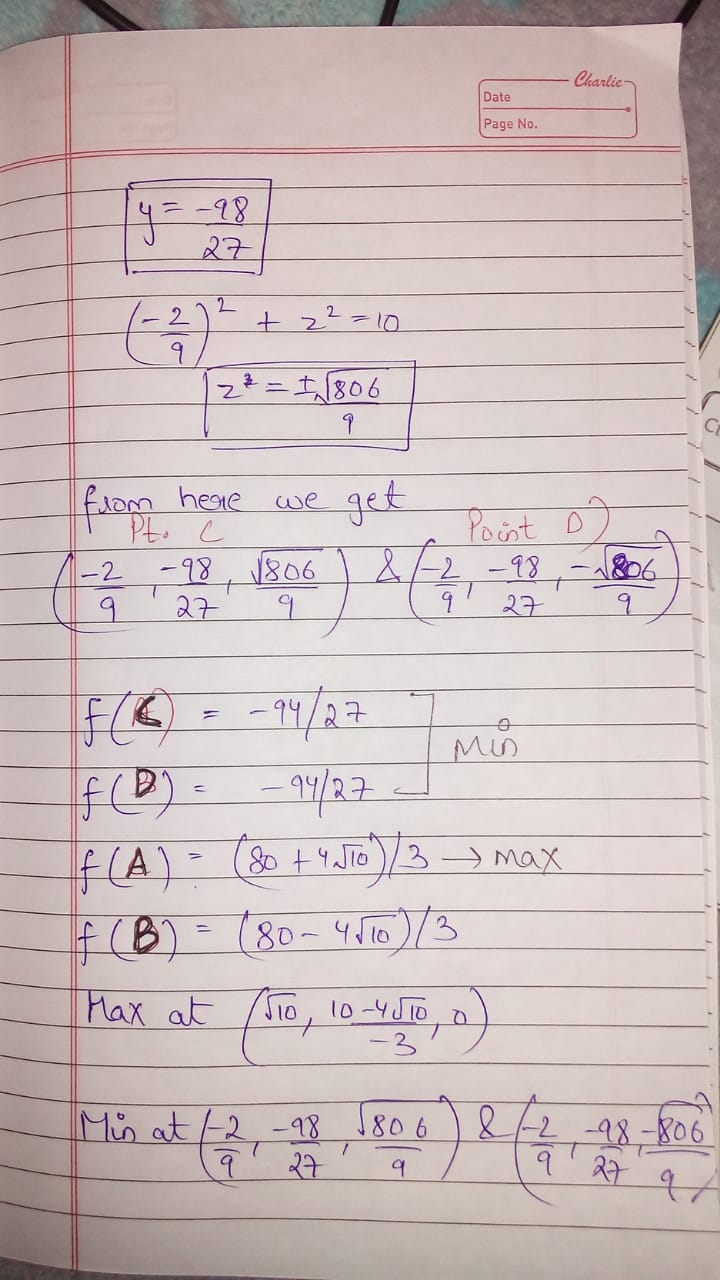 Charlie
Date
Page No.
y = -98/27
(-2/9)² + z² = 10
z = ±√806/9
from here we get
Pt. C Point D
(-2/9, -98/27, √806/9) & (-2/9, -98/27, -√806/9)
f(C) = -94/27
Min
f(D) = -94/27
f(A) = (80 + 4√10)/3 → max
f(B) = (80 - 4√10)/3
Max at (√10, 10-4√10/-3, 0)
Min at (-2/9, -98/27, √806/9) & (-2/9, -98/27, -√806/9)